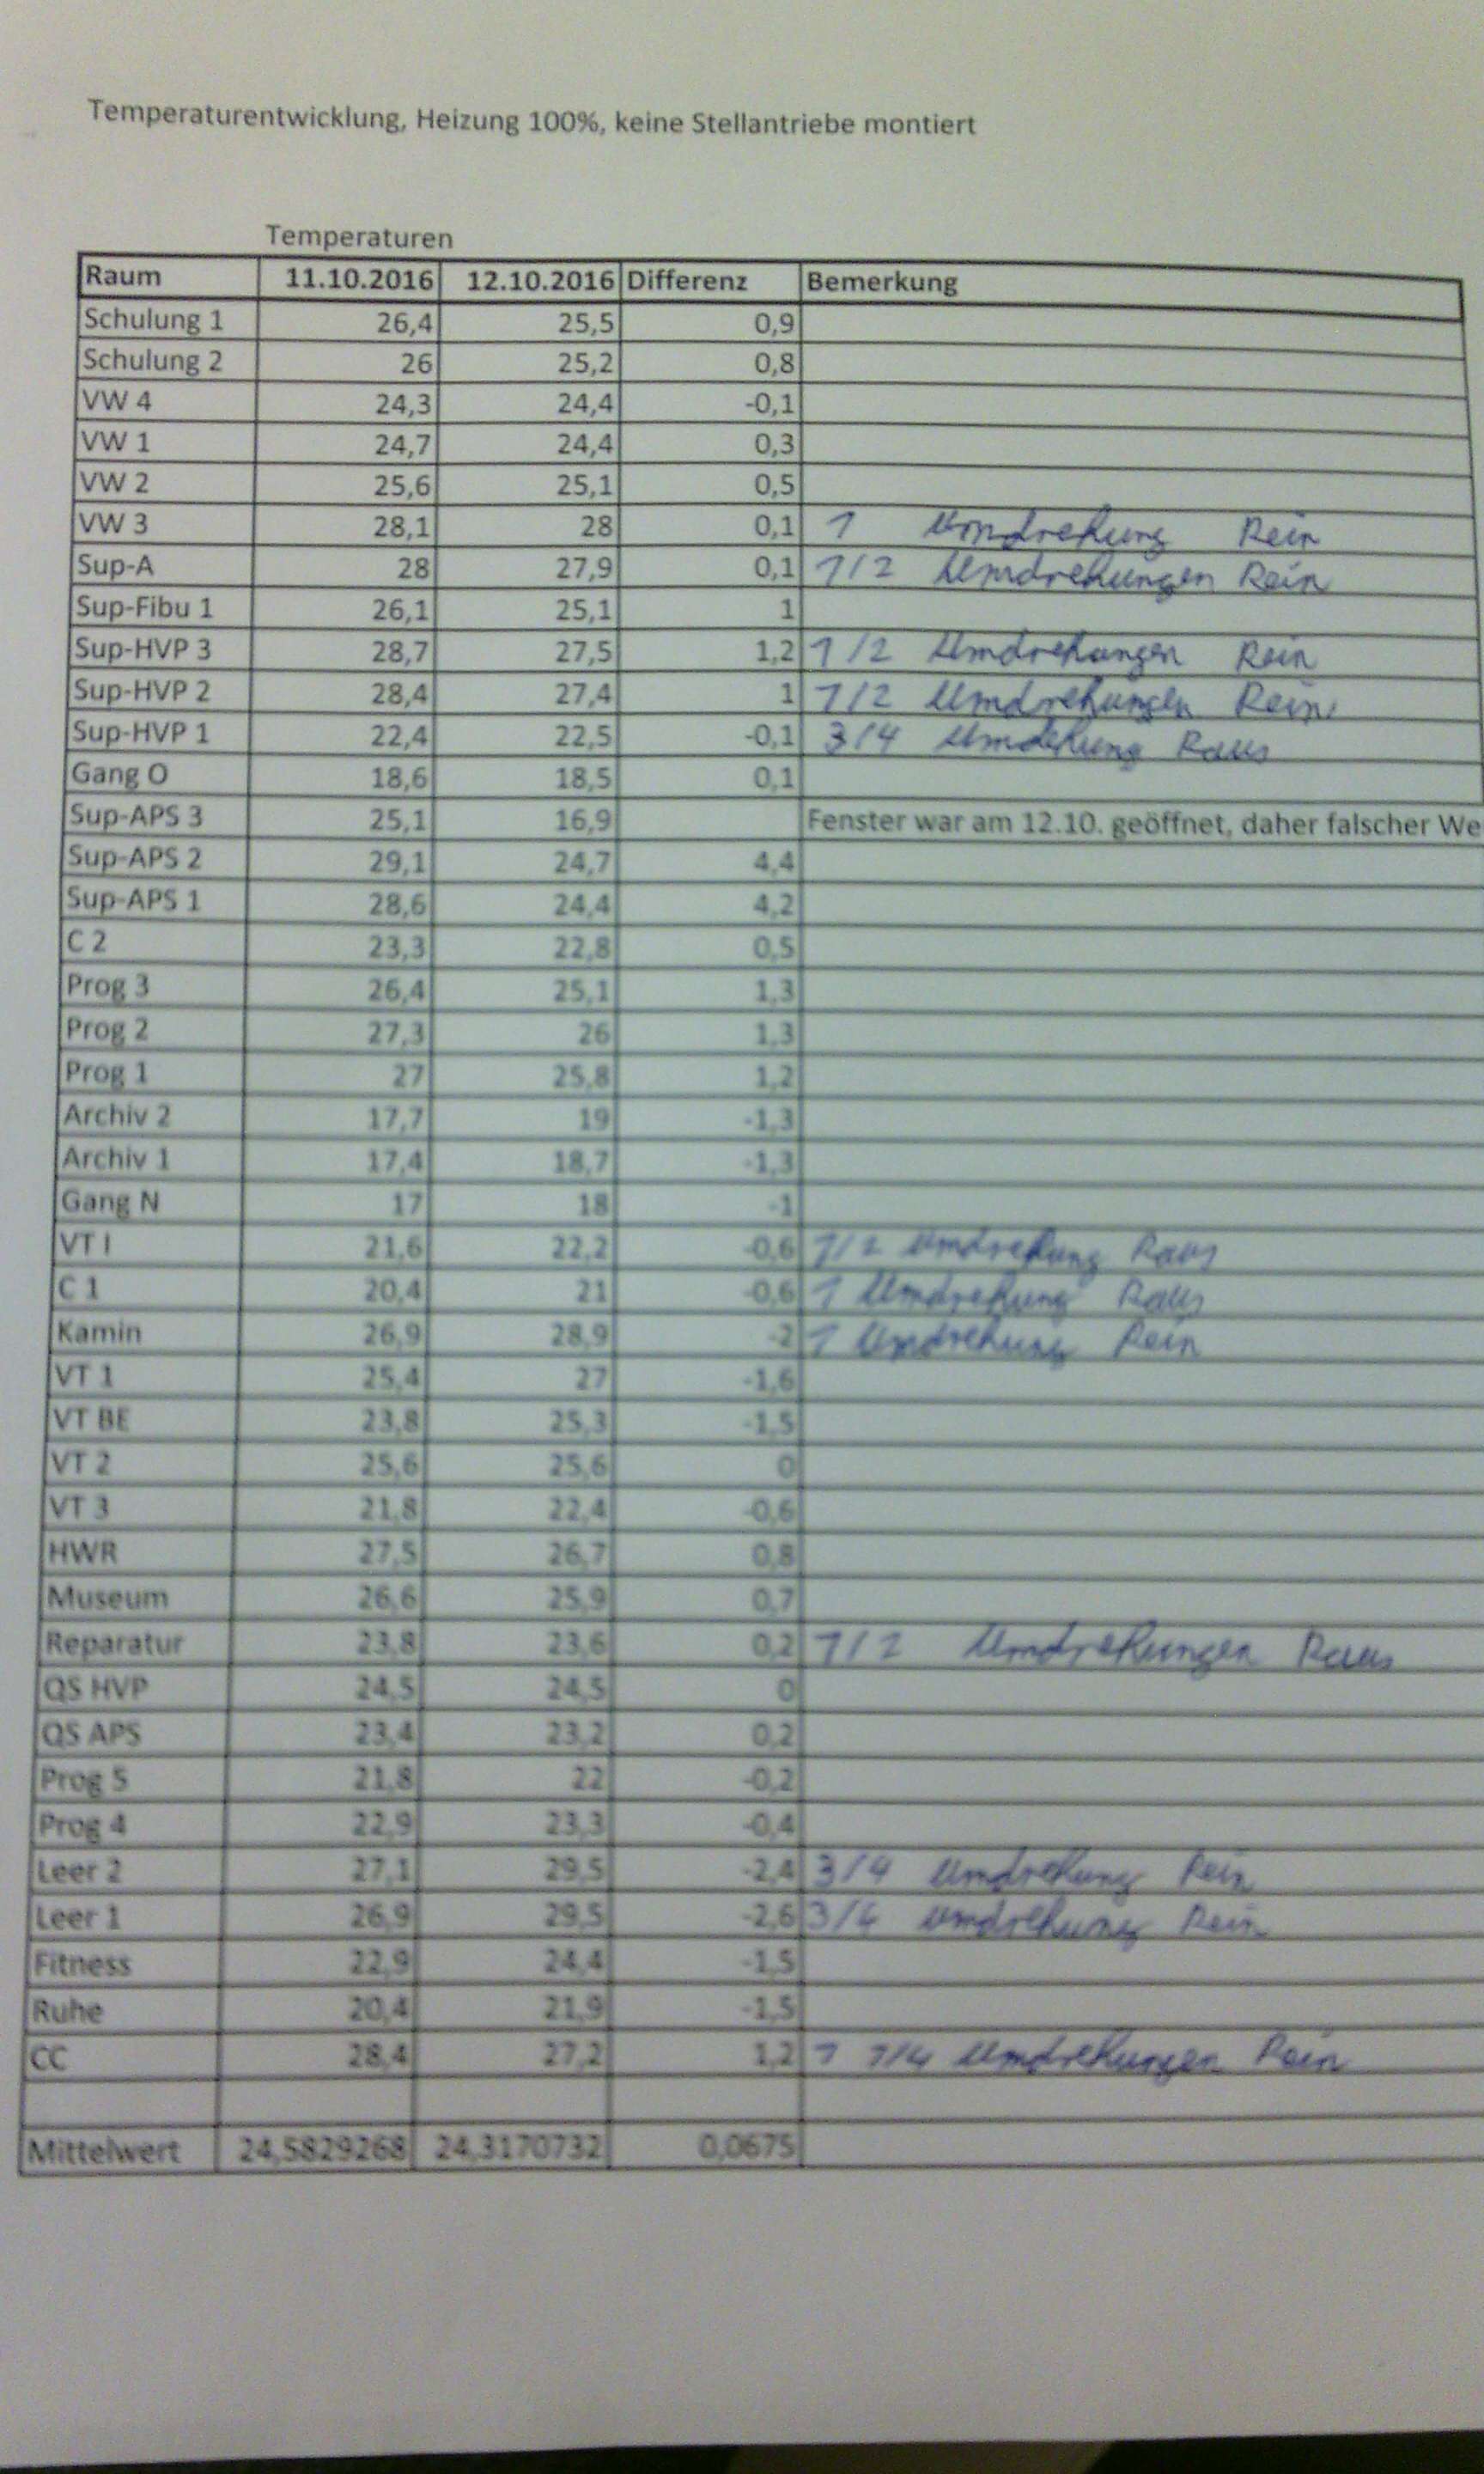 Temperaturentwicklung, Heizung 100%, keine Stellantriebe montiert
Temperaturen
Raum 11.10.2016 12.10.2016 Differenz Bemerkung
Schulung 1 26,4 25,5 0,9
Schulung 2 26 25,2 0,8
VW 4 24,3 24,4 -0,1
VW 1 24,7 24,4 0,3
VW 2 25,6 25,1 0,5
VW 3 28,1 28 0,1 1 Umdrehung Rein
Sup-A 28 27,9 0,1 1/2 Umdrehungen Rein
Sup-Fibu 1 26,1 25,1 1
Sup-HVP 3 28,7 27,5 1,2 1/2 Umdrehungen Rein
Sup-HVP 2 28,4 27,4 1 1/2 Umdrehungen Rein
Sup-HVP 1 22,4 22,5 -0,1 3/4 Umdrehung Raus
Gang O 18,6 18,5 0,1
Sup-APS 3 25,1 16,9 Fenster war am 12.10. geöffnet, daher falscher We
Sup-APS 2 29,1 24,7 4,4
Sup-APS 1 28,6 24,4 4,2
C 2 23,3 22,8 0,5
Prog 3 26,4 25,1 1,3
Prog 2 27,3 26 1,3
Prog 1 27 25,8 1,2
Archiv 2 17,7 19 -1,3
Archiv 1 17,4 18,7 -1,3
Gang N 17 18 -1
VT I 21,6 22,2 -0,6 1/2 Umdrehung Raus
C 1 20,4 21 -0,6 1 Umdrehung Raus
Kamin 26,9 28,9 -2 1 Umdrehung Rein
VT 1 25,4 27 -1,6
VT BE 23,8 25,3 -1,5
VT 2 25,6 25,6 0
VT 3 21,8 22,4 -0,6
HWR 27,5 26,7 0,8
Museum 26,6 25,9 0,7
Reparatur 23,8 23,6 0,2 1/2 Umdrehungen Raus
QS HVP 24,5 24,5 0
QS APS 23,4 23,2 0,2
Prog 5 21,8 22 -0,2
Prog 4 22,9 23,3 -0,4
Leer 2 27,1 29,5 -2,4 3/4 Umdrehung Rein
Leer 1 26,9 29,5 -2,6 3/4 Umdrehung Rein
Fitness 22,9 24,4 -1,5
Ruhe 20,4 21,9 -1,5
CC 28,4 27,2 1,2 1 1/4 Umdrehungen Rein
Mittelwert 24,5829268 24,3170732 0,0675